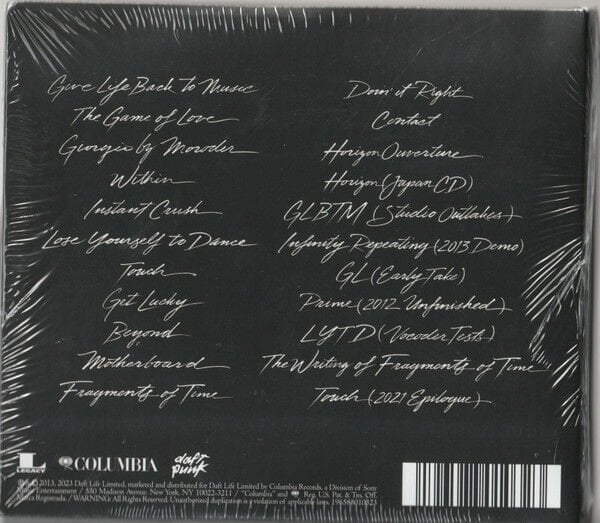 Give Life Back to Music
The Game of Love
Giorgio by Moroder
Within
Instant Crush
Lose Yourself to Dance
Touch
Get Lucky
Beyond
Motherboard
Fragments of Time
Doin' it Right
Contact
Horizon Ouverture
Horizon (Japan CD)
GLBTM (Studio Outtakes)
Infinity Repeating (2013 Demo)
GL (Early Take)
Prime (2012 Unfinished)
LYTD (Vocoder Tests)
The Writing of Fragments of Time
Touch (2021 Epilogue)
L LEGACY
COLUMBIA
daft punk
℗ © 2013, 2023 Daft Life Limited, marketed and distributed for Daft Life Limited by Columbia Records, a Division of Sony
Music Entertainment / 550 Madison Avenue, New York, NY 10022-3211 / "Columbia" and Reg. U.S. Pat. & Tm. Off.
Marca Registrada. / WARNING: All Rights Reserved. Unauthorized duplication is a violation of applicable laws. 19658801082 3